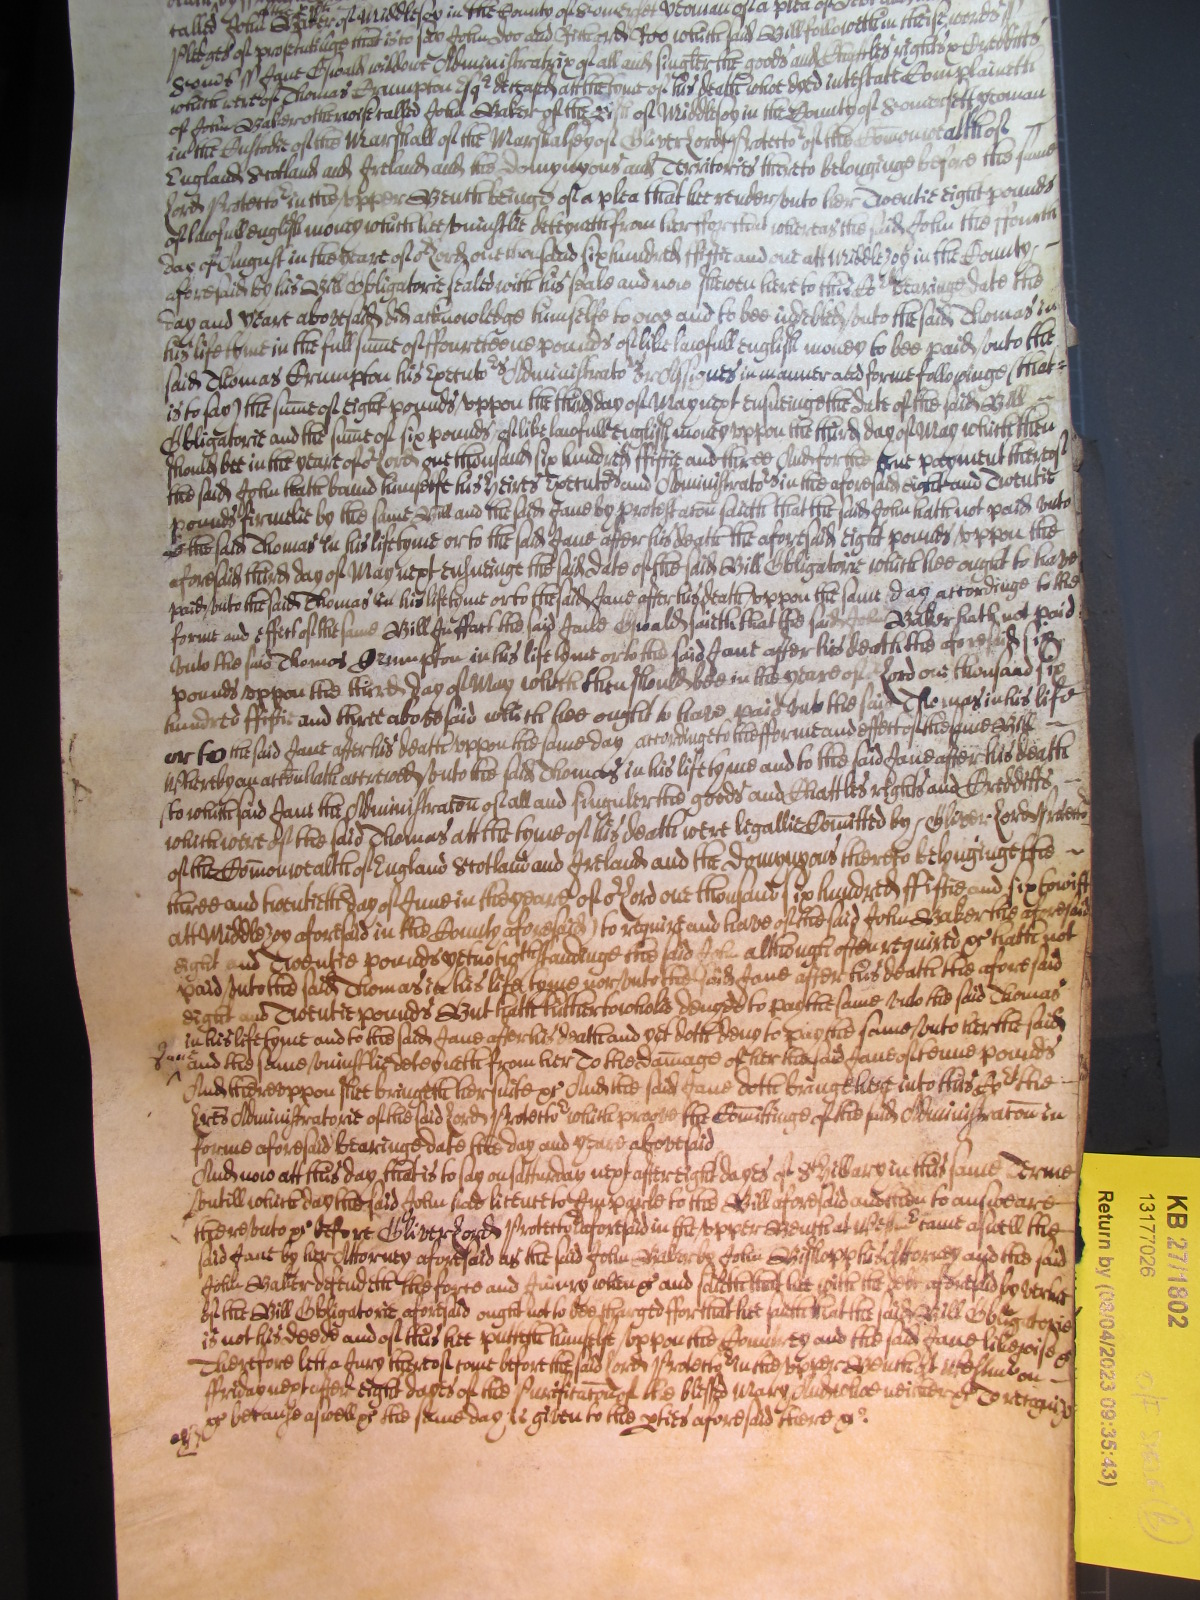 called John Baker of Middlesoy in the County of Somerset yeoman of a plea of
Pledges of prosecutinge that is to say John Doo and Richard Roo which said Bill followeth in these words //
Somst // Jane Ewalds widowe Administratrix of all and singler the goods and Chattles rights & Credditts
which were of Thomas Crumpton Esqr deceased att the tyme of his death whoe dyed intestate Complaineth
of John Baker otherwise called John Baker of the of Middlesoy in the County of Somersett yeoman
in the Custodie of the Marshall of the Marshalsey of Oliver Lord Protector of the Comonwealth of
England Scotland and Ireland and the Domynyons and Territories thereto belonginge before the same
Lord Protector in the vpper Bench beinge of a plea that hee render vnto her Twentie eight pounds
of lawfull english money which hee vniustlie deteyneth from her ffor that whereas the said John the ffourth
day of August in the yeare of or Lord one thousand six hundred fiftie and one att Middlezoy in the County
aforesaid by his Bill Obligatorie sealed with his seale and now shewen here to this Cort bearinge date the
day and yeare abovesaid did acknowledge himselfe to owe and to bee indebted vnto the said Thomas in
his life tyme in the full sume of ffourteene pounds of like lawfull english money to bee paid vnto the
said Thomas Crumpton his Executors Administrators or Assignes in manner and forme followinge (that
is to say) the sume of eight pounds vppon the third day of May next ensueinge the date of the said Bill
Obligatorie and the sume of six pounds of like lawfull english money vppon the third day of May which then
should bee in the yeare of or Lord one thousand six hundred fiftie and three And for the true payment thereof
the said John hath bound himselfe his heires Executors and Administrators in the aforesaid eight and Twentie
pounds firmelie by the same Bill and the said Jane by protestacon saieth that the said John hath not paid vnto
the said Thomas in his lifetyme or to the said Jane after his death the aforesaid eight pounds vppon the
aforesaid third day of May next ensueinge the said date of the said Bill Obligatorie which hee ought to have
paid vnto the said Thomas in his lifetyme or to the said Jane after his death vppon the same day accordinge to the
forme and effect of the same Bill In ffact the said Jane Ewalds saieth that the said John Baker hath not paid
vnto the said Thomas Crumpton in his life tyme or to the said Jane after his death the aforesaid six
pounds vppon the third day of May which then should bee in the yeare of or Lord one thousand six
hundred fiftie and three abovesaid which hee ought to have paid vnto the said Thomas in his life
or to the said Jane after his death vppon the same day accordinge to the fforme and effect of the same Bill
Whereby an accon hath accrewed vnto the said Thomas in his life tyme and to the said Jane after his death
(to which said Jane the Administracon of all and singuler the goods and Chattles rights and Credditts
which were of the said Thomas att the tyme of his death were legallie Comitted by Oliver Lord Protector
of the Comonwealth of England Scotland and Ireland and the Domynyons thereto belonginge the
three and twentieth day of June in the yeare of or Lord one thousand six hundred ffiftie and six to witt
att Middlezoy aforesaid in the County aforesaid) to require and have of the said John Baker the aforesaid
eight and Twentie pounds yet notwithstandinge the said John although often required &c hath not
paid vnto the said Thomas in his life tyme nor vnto the said Jane after his death the aforesaid
eight and Twentie pounds But hath hitherto wholie denyed to pay the same vnto the said Thomas
in his lifetyme and to the said Jane after his death and yet doth deny to pay the same vnto her the said
Jane and the same vniustlie deteyneth from her To the damage of her the said Jane of tenne pounds
And thereuppon shee bringeth her suite &c And the said Jane doth bringe here into this Cort the
Lres Administratorie of the said Lord Protector which prove the Comittinge of the said Administracon in
forme aforesaid bearinge date the day and yeare abovesaid
And now att this day that is to say on Satturday next after eight dayes of St Hillary in this same Terme
vntill which day the said John had licence to Imparle to the Bill aforesaid and then to answeare
therevnto &c before Oliver Lord Protector aforesaid in the vpper Bench at came aswell the
said Jane by her Attorney aforesaid as the said John Baker by John Bishopp his Attorney and the said
John Baker defendeth the force and Iniury when &c and saieth that hee with the debt aforesaid by vertue
of the Bill Obligatorie aforesaid ought not to bee charged ffor that hee saieth that the said Bill Obligatorie
is not his deede and of this hee putteth himselfe vppon the Countrey and the said Jane likewise &c
Therefore lett a Jury thereof come before the said Lord Protector in the vpper Bench at on
ffriday next after eight dayes of the Purificacon of the blessed Mary And whoe neither &c To recognize
&c because aswell &c the same day is given to the pties aforesaid there &c
KB 27/1802
13177026
Return by (08/04/2023 09:35:43)